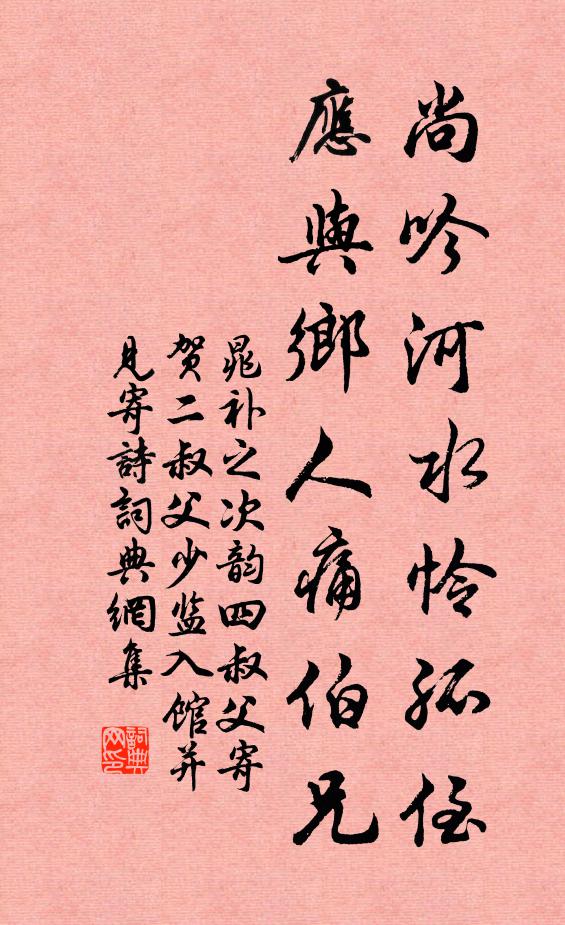 尚吟河水怜孤侄
應與鄉人痛伯兄
晁补之次韵四叔父寄
贺二叔父少监入馆并
見寄詩詞典網集
詞典
网印